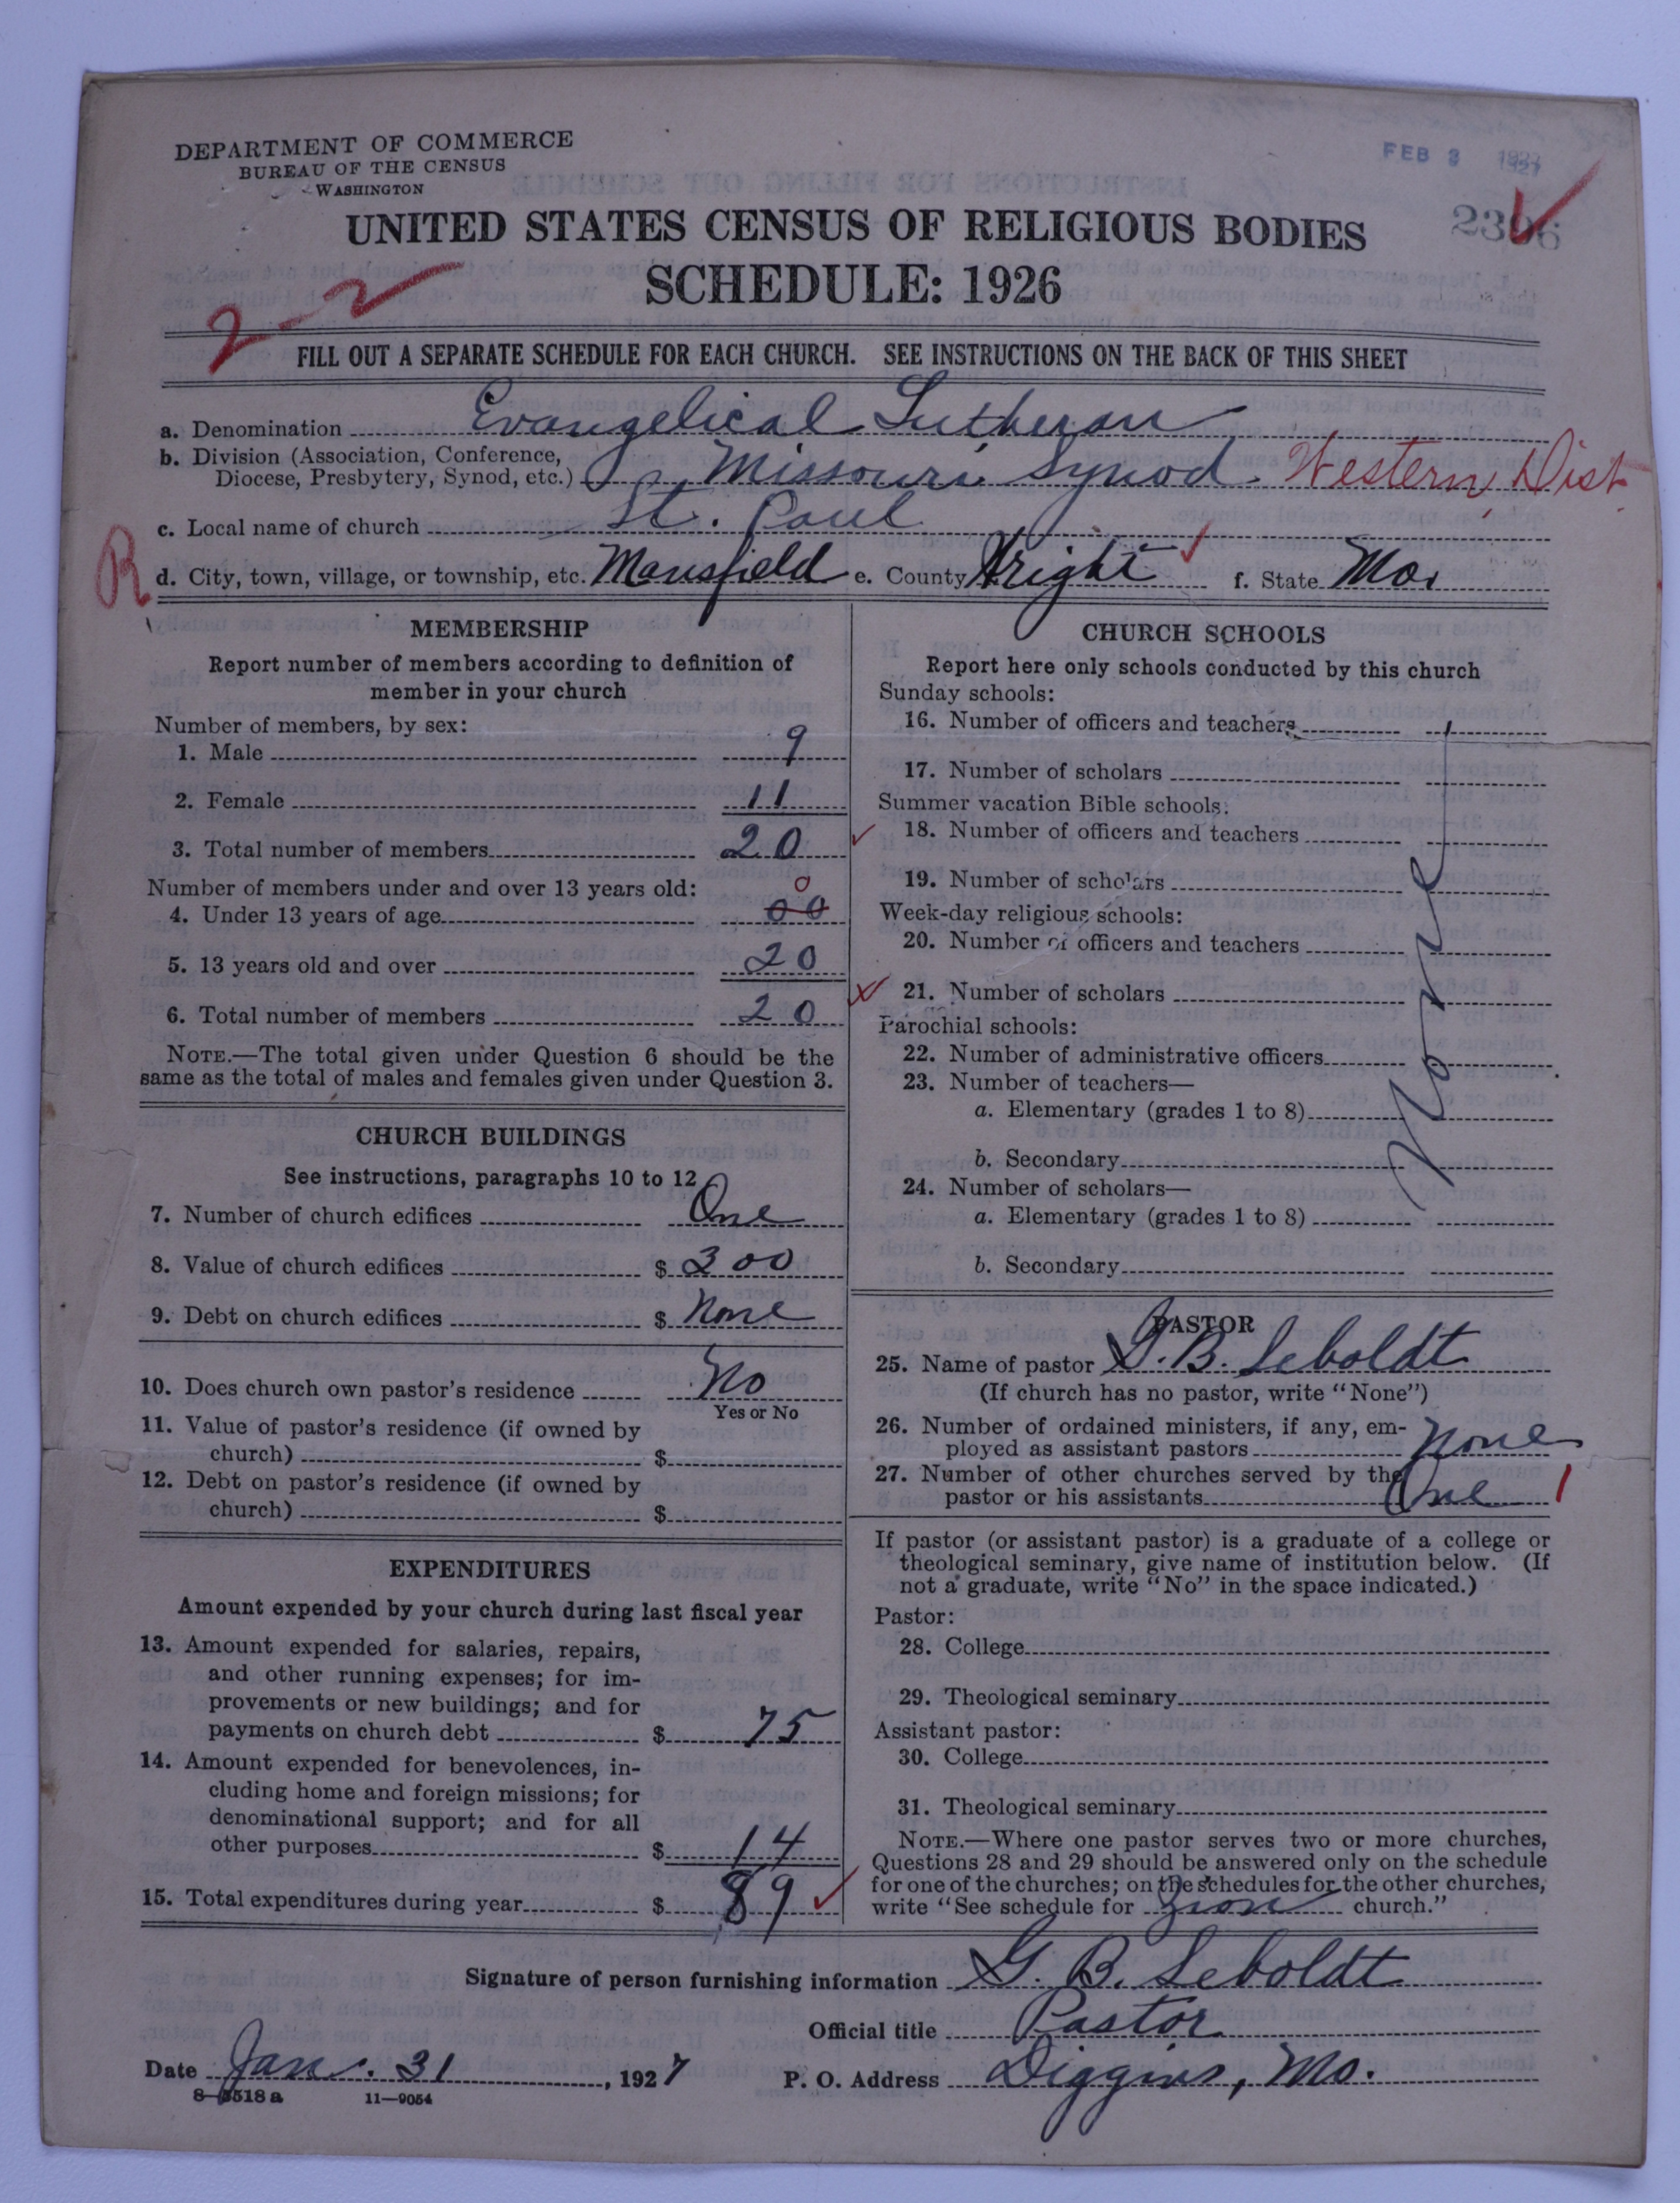 DEPARTMENT OF COMMERCE
BUREAU OF THE CENSUS
WASHINGTON
FEB 3 1927
UNITED STATES CENSUS OF RELIGIOUS BODIES
SCHEDULE: 1926
2-2
FILL OUT A SEPARATE SCHEDULE FOR EACH CHURCH. SEE INSTRUCTIONS ON THE BACK OF THIS SHEET
a. Denomination Evangelical Lutheran
b. Division (Association, Conference,
Diocese, Presbytery, Synod, etc.) Missouri Synod Western Dist.
c. Local name of church St. Paul
R
d. City, town, village, or township, etc. Mansfield e. County Wright f. State Mo.
MEMBERSHIP
Report number of members according to definition of
member in your church
Number of members, by sex:
1. Male 9
2. Female 11
3. Total number of members 20
Number of members under and over 13 years old:
0
4. Under 13 years of age 00
5. 13 years old and over 20
6. Total number of members 20
NOTE.—The total given under Question 6 should be the
same as the total of males and females given under Question 3.
CHURCH BUILDINGS
See instructions, paragraphs 10 to 12
7. Number of church edifices One
8. Value of church edifices $ 300
9. Debt on church edifices $ None
10. Does church own pastor's residence No
Yes or No
11. Value of pastor's residence (if owned by
church) $
12. Debt on pastor's residence (if owned by
church) $
EXPENDITURES
Amount expended by your church during last fiscal year
13. Amount expended for salaries, repairs,
and other running expenses; for im-
provements or new buildings; and for
payments on church debt $ 75
14. Amount expended for benevolences, in-
cluding home and foreign missions; for
denominational support; and for all
other purposes $ 14
15. Total expenditures during year $ 89
CHURCH SCHOOLS
Report here only schools conducted by this church
Sunday schools:
16. Number of officers and teachers
17. Number of scholars
Summer vacation Bible schools:
18. Number of officers and teachers
19. Number of scholars
Week-day religious schools:
20. Number of officers and teachers
21. Number of scholars
Parochial schools:
22. Number of administrative officers
23. Number of teachers—
a. Elementary (grades 1 to 8)
b. Secondary
24. Number of scholars—
a. Elementary (grades 1 to 8)
b. Secondary
None
PASTOR
25. Name of pastor G. B. Seboldt
(If church has no pastor, write "None")
26. Number of ordained ministers, if any, em-
ployed as assistant pastors None
27. Number of other churches served by the
pastor or his assistants One 1
If pastor (or assistant pastor) is a graduate of a college or
theological seminary, give name of institution below. (If
not a graduate, write "No" in the space indicated.)
Pastor:
28. College
29. Theological seminary
Assistant pastor:
30. College
31. Theological seminary
NOTE.—Where one pastor serves two or more churches,
Questions 28 and 29 should be answered only on the schedule
for one of the churches; on the schedules for the other churches,
write "See schedule for Zion church."
Signature of person furnishing information G. B. Seboldt
Official title Pastor
Date Jan. 31, 1927 P. O. Address Diggins, Mo.
8—3518a 11—9054